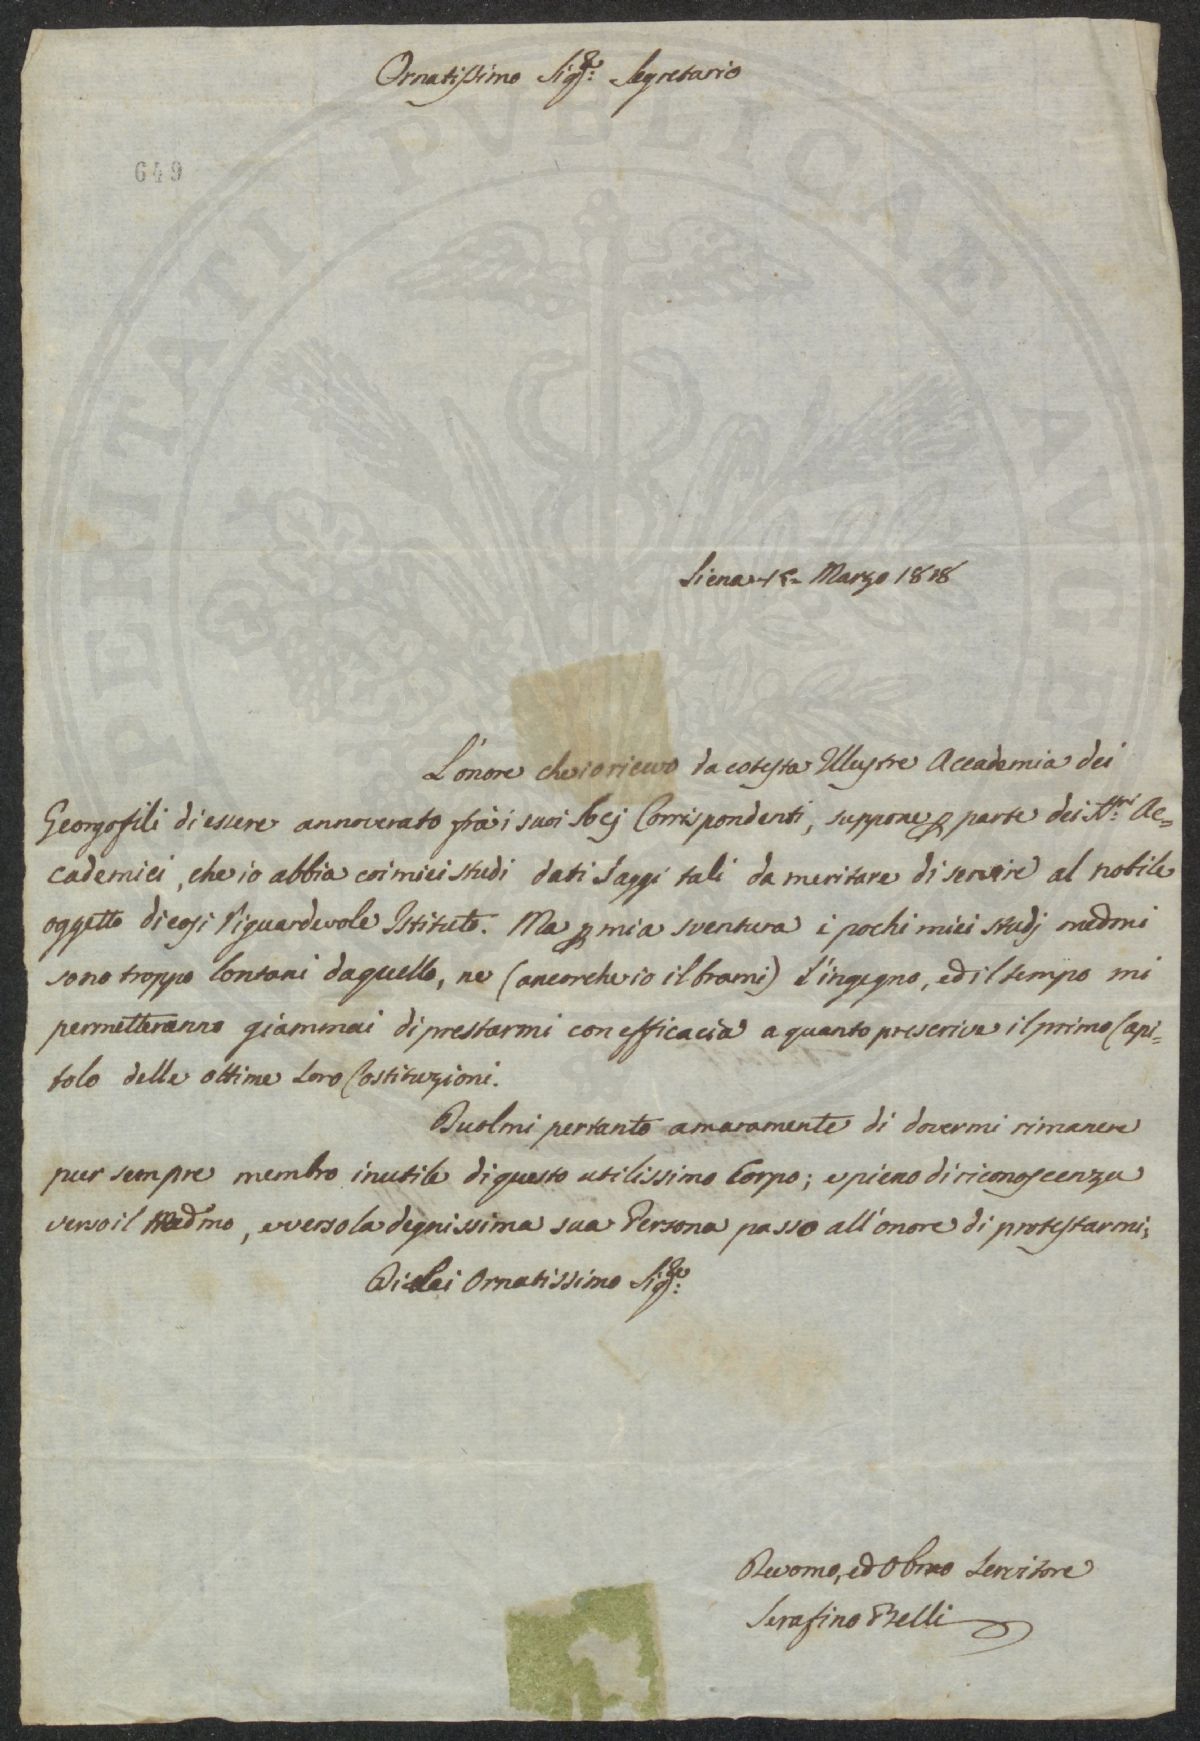 Ornatissimo Sig.re Segretario
649
PERITATI PVBLICAE AVGE
Siena Marzo 1818
L'onore che io ricevo da cotesta Illustre Accademia dei
Georgofili di essere annoverato frà i suoi Socj Corrispondenti, suppone p parte dei Ac=
cademici, che io abbia coi miei studi dati Saggi tali da meritare di servire al nobile
oggetto di Riguardevole Istituto. Ma p mia sventura i pochi miei studj medmi
sono troppo lontani da quello, ne (ancorche io il brami) l'ingegno, ed il tempo mi
permetteranno giammai di prestarmi con efficacia a quanto prescrive il primo Capi=
tolo delle ottime loro Costituzioni.
Duolmi pertanto amaramente di dovermi rimanere
per sempre membro inutile di questo utilissimo Corpo; e pieno di riconoscenza
verso il medmo, e verso la degnissima sua Persona passo all'onore di protestarmi,
Di Lei Ornatissimo Sig.re
Devomo, ed Obmo Servitore
Serafino Belli